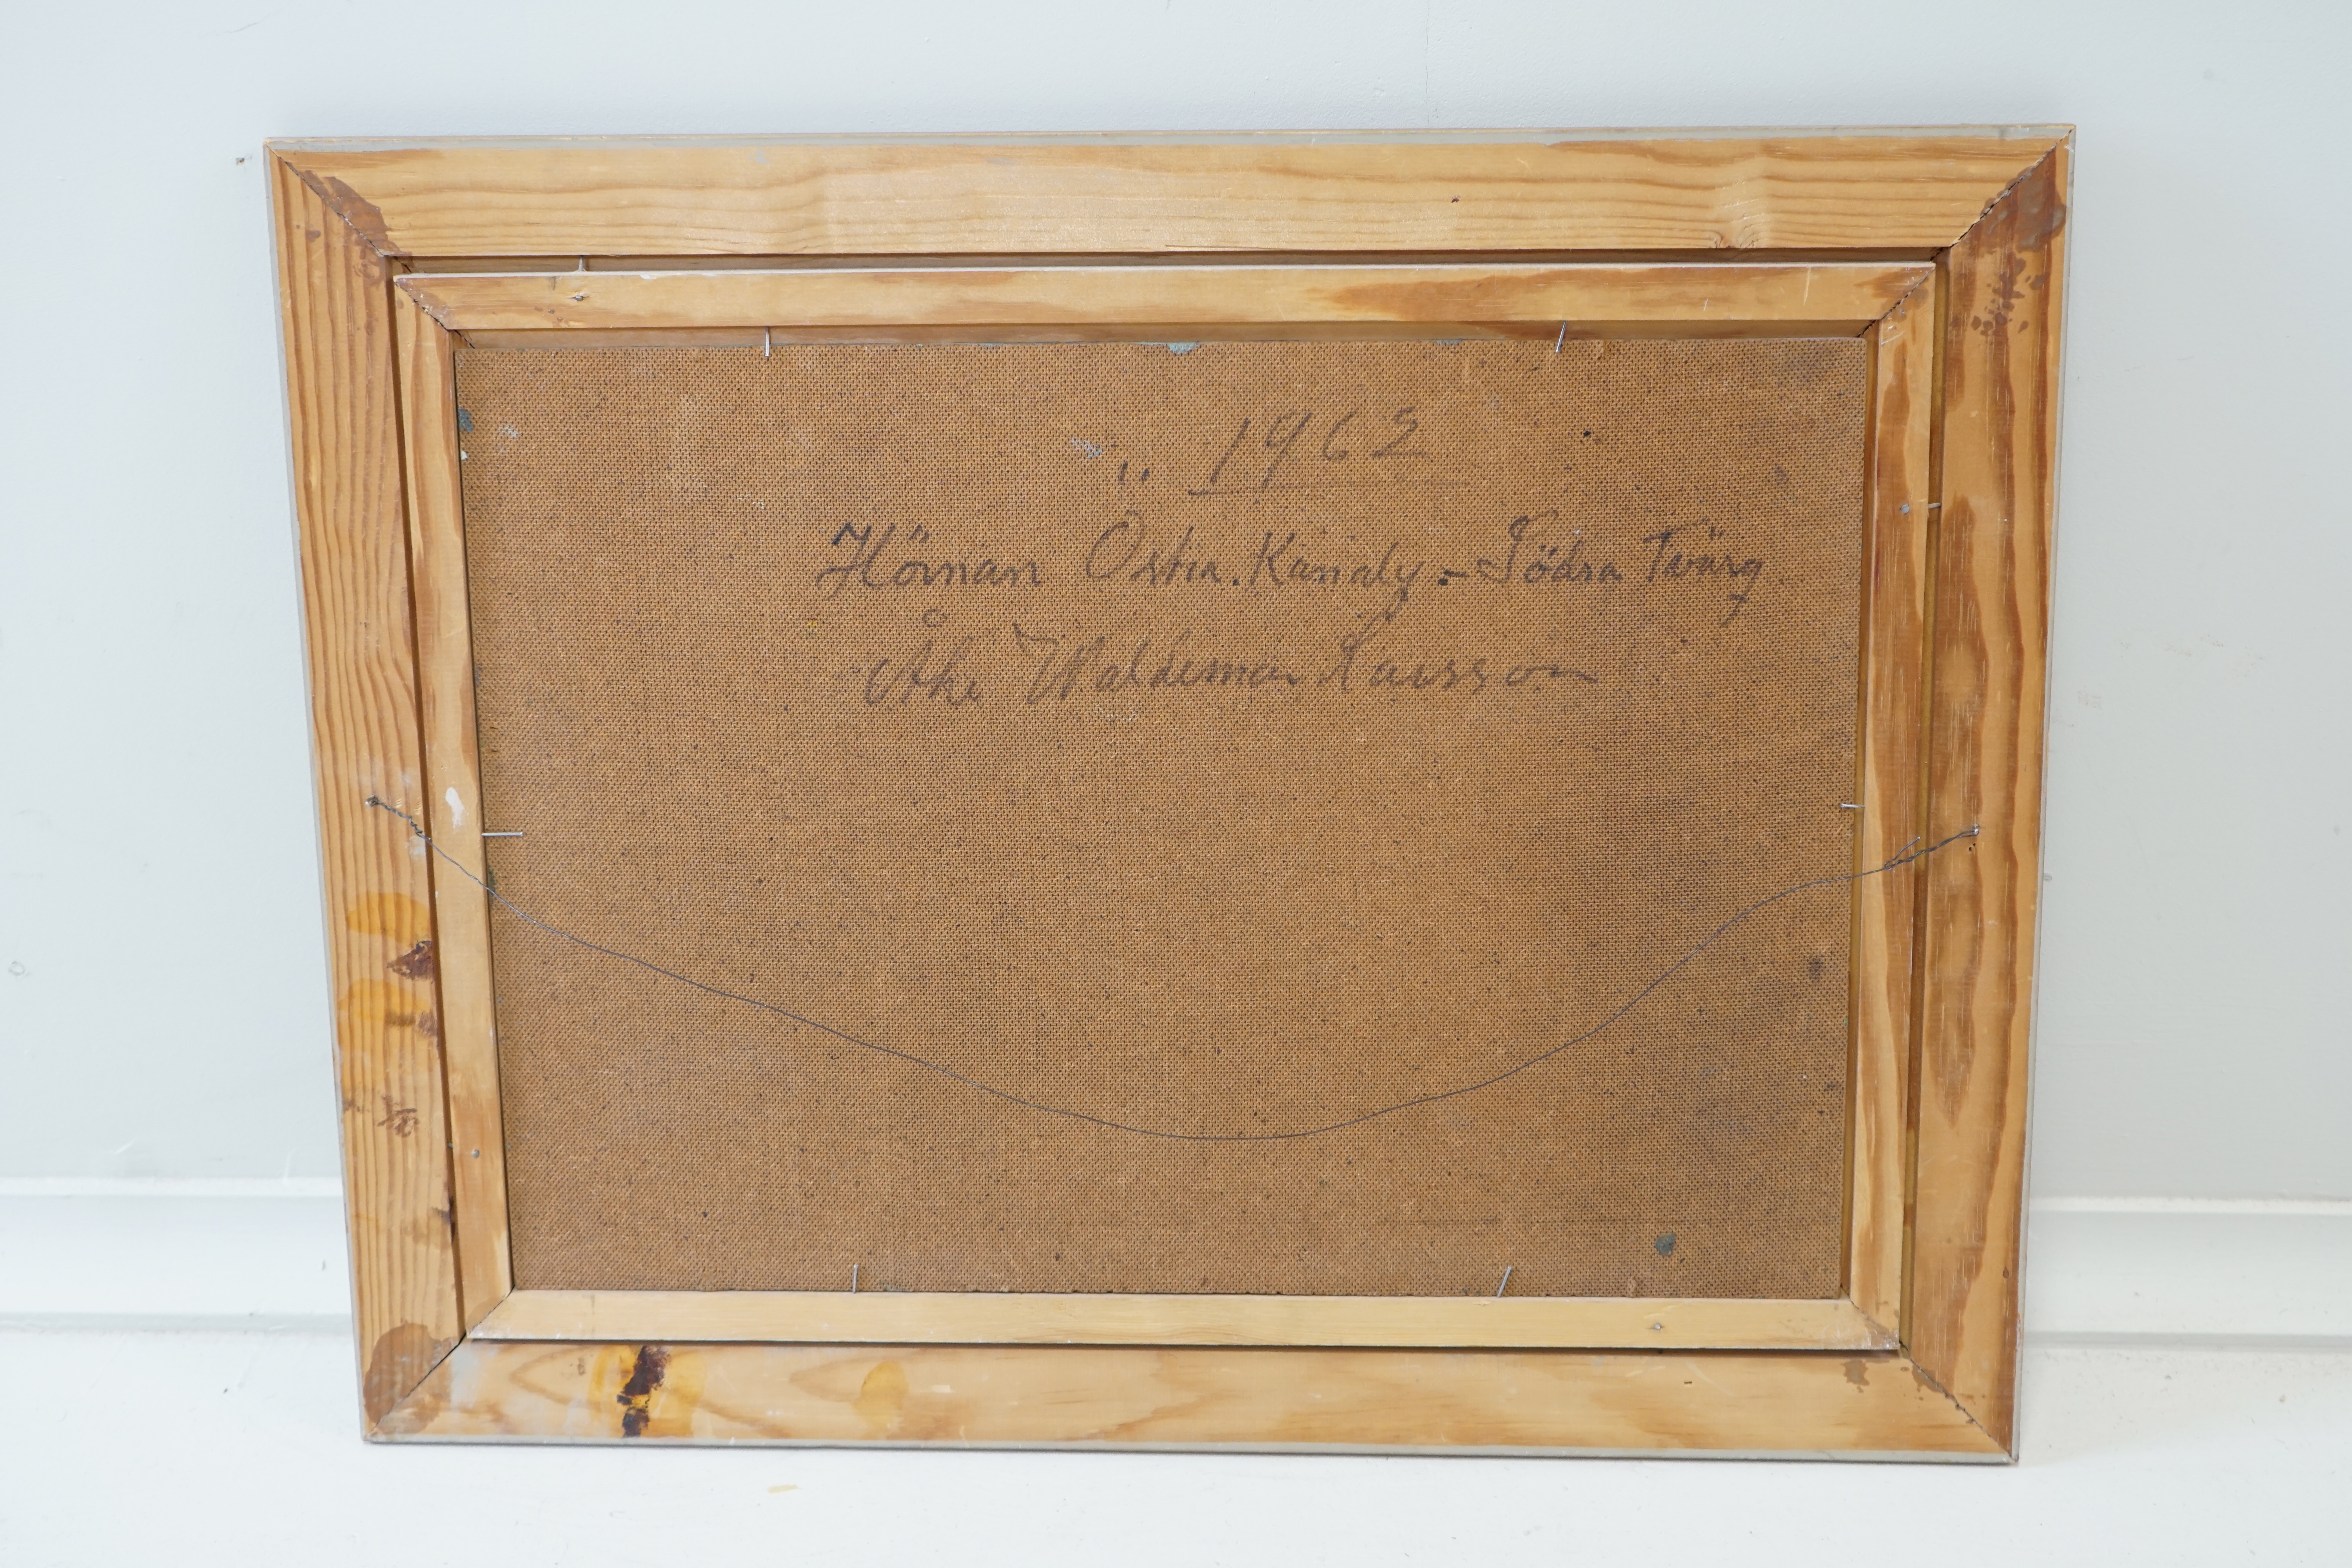 1962
Hörnan Östra. Kanalg. - Södra Tvärg.
Åke Waldemar Larsson